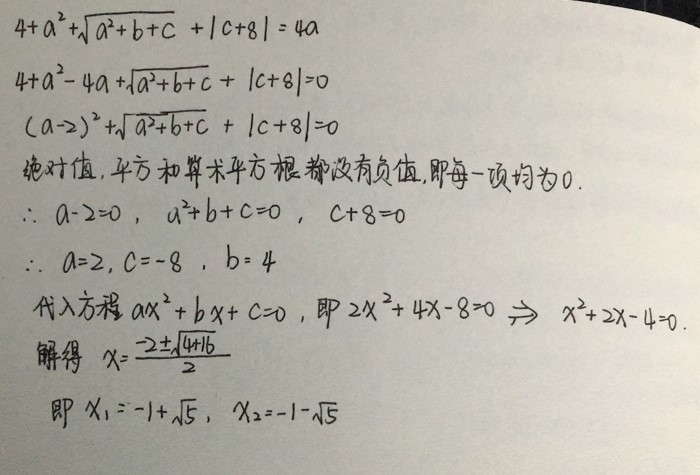 4+a²+√(a²+b+c) + |c+8| = 4a
4+a²-4a+√(a²+b+c) + |c+8|=0
(a-2)²+√(a²+b+c) + |c+8|=0
绝对值,平方和算术平方根都没有负值,即每一项均为0.
∴ a-2=0, a²+b+c=0, c+8=0
∴ a=2, c=-8, b=4
代入方程 ax²+bx+c=0, 即 2x²+4x-8=0 ⇒ x²+2x-4=0.
解得 x=(-2±√(4+16))/2
即 x₁=-1+√5, x₂=-1-√5